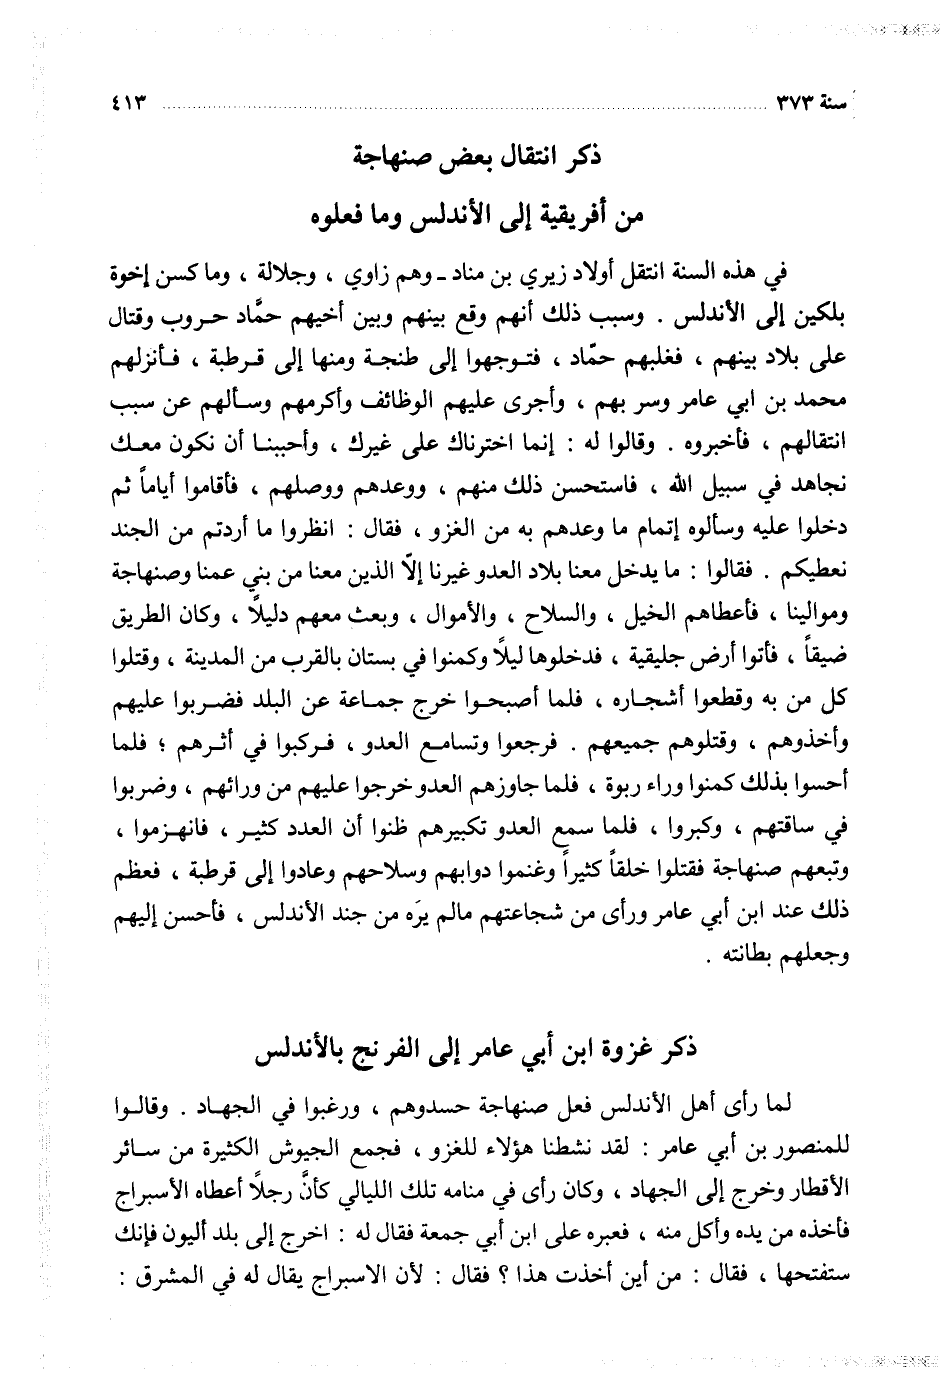 سنة ٣٧٣ ................................................ ٤١٣
ذكر انتقال بعض صنهاجة
من أفريقية إلى الأندلس وما فعلوه
في هذه السنة انتقل أولاد زيري بن مناد ـ وهم زاوي ، وجلالة ، وماكسن إخوة
بلكين إلى الأندلس . وسبب ذلك أنهم وقع بينهم وبين أخيهم حمَّاد حروب وقتال
على بلاد بينهم ، فغلبهم حمّاد ، فتوجهوا إلى طنجة ومنها إلى قرطبة ، فأنزلهم
محمد بن ابي عامر وسر بهم ، وأجرى عليهم الوظائف وأكرمهم وسألهم عن سبب
انتقالهم ، فأخبروه . وقالوا له : إنما اخترناك على غيرك ، وأحببنا أن نكون معك
نجاهد في سبيل الله ، فاستحسن ذلك منهم ، ووعدهم ووصلهم ، فأقاموا أياماً ثم
دخلوا عليه وسألوه إتمام ما وعدهم به من الغزو ، فقال : انظروا ما أردتم من الجند
نعطيكم . فقالوا : ما يدخل معنا بلاد العدو غيرنا إلاّ الذين معنا من بني عمنا وصنهاجة
وموالينا ، فأعطاهم الخيل ، والسلاح ، والأموال ، وبعث معهم دليلاً ، وكان الطريق
ضيقاً ، فأتوا أرض جليقية ، فدخلوها ليلاً وكمنوا في بستان بالقرب من المدينة ، وقتلوا
كل من به وقطعوا أشجاره ، فلما أصبحوا خرج جماعة عن البلد فضربوا عليهم
وأخذوهم ، وقتلوهم جميعهم . فرجعوا وتسامع العدو ، فركبوا في أثرهم ؛ فلما
أحسوا بذلك كمنوا وراء ربوة ، فلما جاوزهم العدو خرجوا عليهم من ورائهم ، وضربوا
في ساقتهم ، وكبروا ، فلما سمع العدو تكبيرهم ظنوا أن العدد كثير ، فانهزموا ،
وتبعهم صنهاجة فقتلوا خلقاً كثيراً وغنموا دوابهم وسلاحهم وعادوا إلى قرطبة ، فعظم
ذلك عند ابن أبي عامر ورأى من شجاعتهم مالم يرَه من جند الأندلس ، فأحسن إليهم
وجعلهم بطانته .
ذكر غزوة ابن أبي عامر إلى الفرنج بالأندلس
لما رأى أهل الأندلس فعل صنهاجة حسدوهم ، ورغبوا في الجهاد . وقالوا
للمنصور بن أبي عامر : لقد نشطنا هؤلاء للغزو ، فجمع الجيوش الكثيرة من سائر
الأقطار وخرج إلى الجهاد ، وكان رأى في منامه تلك الليالي كأنَّ رجلاً أعطاه الأسبراج
فأخذه من يده وأكل منه ، فعبره على ابن أبي جمعة فقال له : اخرج إلى بلد أليون فإنك
ستفتحها ، فقال : من أين أخذت هذا ؟ فقال : لأن الاسبراج يقال له في المشرق :